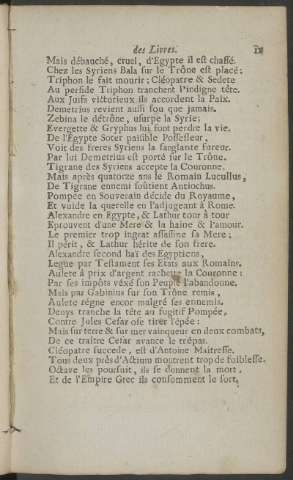 des Livres.
Mais débauché, cruel, d'Egypte il est chassé.
Chez les Syriens Bala sur le Trône est placé;
Triphon le fait mourir; Cléopatre & Sedete
Au perfide Triphon tranchent l'indigne tête.
Aux Juifs victorieux ils accordent la Paix.
Demetrius revient aussi fou que jamais.
Zebina le détrône, usurpe la Syrie;
Evergette & Gryphus lui font perdre la vie.
De l'Egypte Soter paisible Possesseur,
Voit des freres Syriens la sanglante fureur.
Par lui Demetrius est porté sur le Trône.
Tigrane des Syriens accepte la Couronne.
Mais après quatorze ans le Romain Lucullus,
De Tigrane ennemi soûtient Antiochus.
Pompée en Souverain décide du Royaume,
Et vuide la querelle en l'adjugeant à Rome.
Alexandre en Egypte, & Lathur tour à tour
Eprouvent d'une Mere & la haine & l'amour.
Le premier trop ingrat assassine sa Mere;
Il périt, & Lathur hérite de son frere.
Alexandre second haï des Egyptiens,
Legue par Testament ses Etats aux Romains.
Aulete à prix d'argent rachette la Couronne:
Par ses impôts véxé son Peuple l'abandonne.
Mais par Gabinius sur son Trône remis,
Aulete régne encor malgré ses ennemis.
Denys tranche la tête au fugitif Pompée,
Contre Jules Cesar ose tirer l'épée:
Mais sur terre & sur mer vainqueur en deux combats,
De ce traître Cesar avance le trépas.
Cléopatre succede, est d'Antoine Maitresse.
Tous deux près d'Actium montrent trop de foiblesse.
Octave les poursuit, ils se donnent la mort,
Et de l'Empire Grec ils consomment le sort.